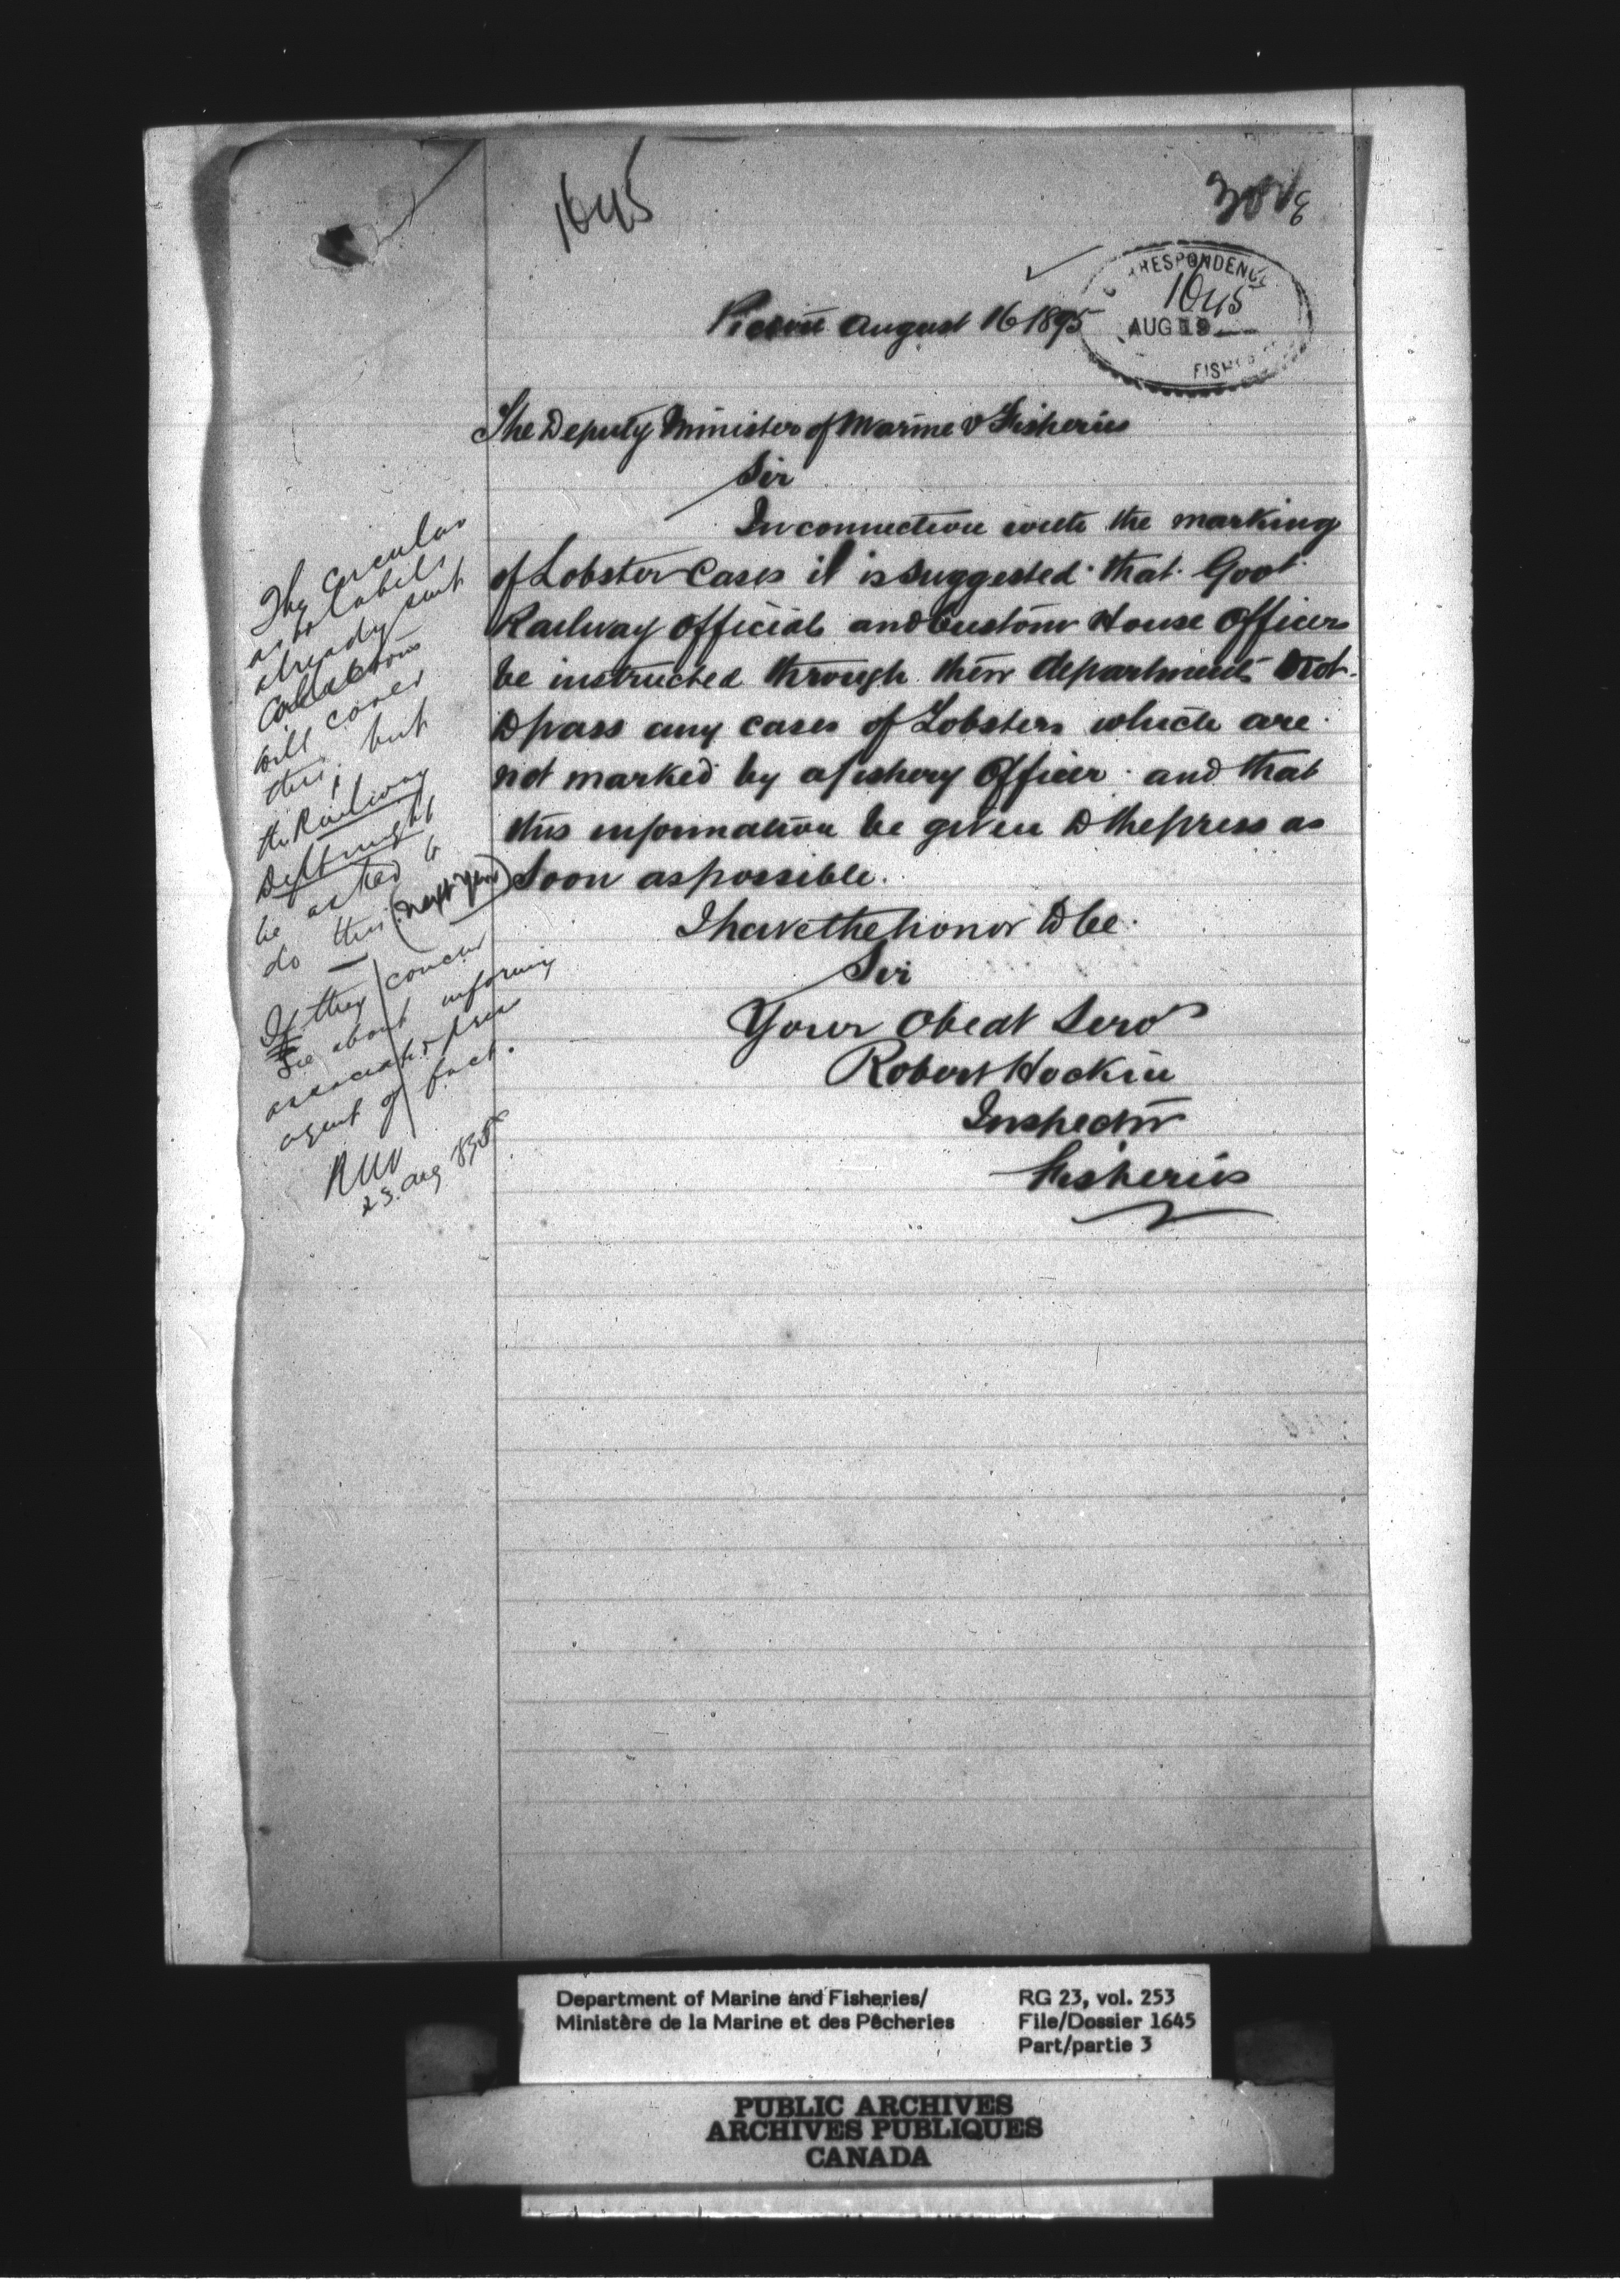 1645
Pictou August 16 1895
RRESPONDENC
1645
AUG 19
FISHE
The Deputy Minister of Marine & Fisheries
Sir
In connection with the marking
of Lobster Cases it is suggested that Govt
Railway Officials and Custom House Officers
be instructed through their departments not
to pass any cases of Lobsters which are
not marked by a fishery Officer and that
this information be given to the press as
soon as possible.
I have the honor to be
Sir
Your Obedt Servt
Robert Hockin
Inspector
Fisheries
The circular
as to labels
already sent
Collectors
will cover
this, but
the Railway
Deptmight
be asked to
do this (next year)
If they concur
see about informing
associated press
agent of fact.
23. Aug 1895
Department of Marine and Fisheries/
Ministère de la Marine et des Pêcheries
RG 23, vol. 253
File/Dossier 1645
Part/partie 3
PUBLIC ARCHIVES
ARCHIVES PUBLIQUES
CANADA